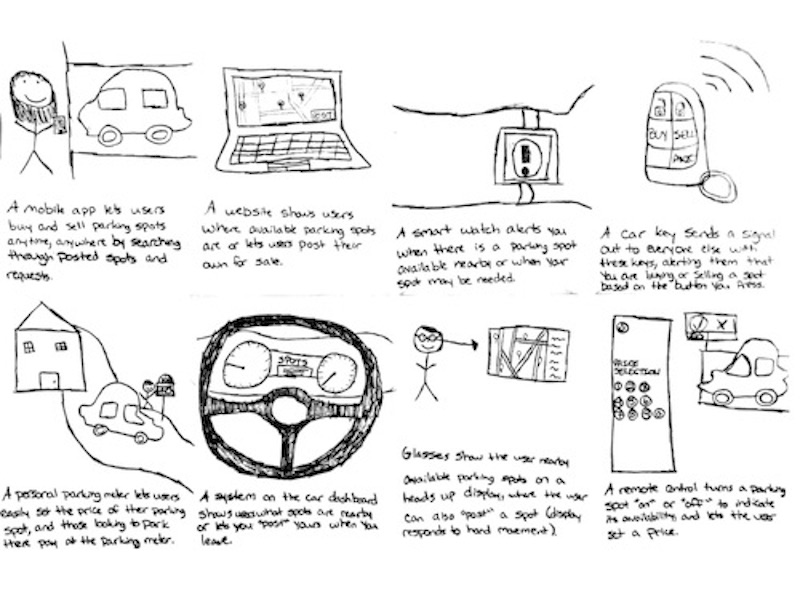 A mobile app lets users
buy and sell parking spots
anytime, anywhere by searching
through posted spots and
requests.
A website shows users
where available parking spots
are or lets users post their
own for sale.
A smart watch alerts you
when there is a parking spot
available nearby or when your
spot may be needed.
BUY SELL
PANIC
A car key sends a signal
out to everyone else with
these keys, alerting them that
you are buying or selling a spot
based on the button you press.
A personal parking meter lets users
easily set the price of their parking
spot, and those looking to park
there pay at the parking meter.
SPOTS
A system on the car dashboard
shows users what spots are nearby
or lets you "post" yours when you
leave.
Glasses show the user nearby
available parking spots on a
heads up display, where the user
can also "post" a spot (display
responds to hand movement).
PRICE
SELECTION
A remote control turns a parking
spot "on" or "off" to indicate
its availability, and lets the user
set a price.